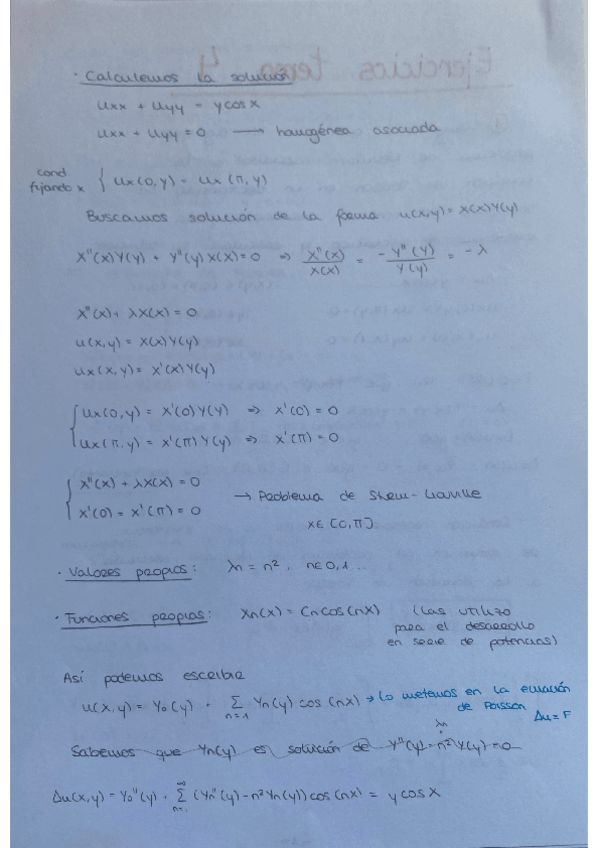 · Calculemos la solución
uxx + uyy = y cos x
uxx + uyy = 0 → homogénea asociada
cond fijando x { ux(0,y) = ux(π,y)
Buscamos solución de la forma u(x,y) = X(x)Y(y)
X"(x)Y(y) + Y"(y)X(x) = 0 ⇒ X"(x)/X(x) = - Y"(y)/Y(y) = -λ
X"(x) + λX(x) = 0
u(x,y) = X(x)Y(y)
ux(x,y) = X'(x)Y(y)
ux(0,y) = X'(0)Y(y) ⇒ X'(0) = 0
ux(π,y) = X'(π)Y(y) ⇒ X'(π) = 0
X"(x) + λX(x) = 0
X'(0) = X'(π) = 0
→ Problema de Liouville
x∈[0,π]
· Valores propios: λn = n², n∈0,1...
· Funciones propias: Xn(x) = Cn cos(nx) (Las utilizo
para el desarrollo
en serie de potencias)
Así podemos escribir
u(x,y) = Y0(y) + Σ n=1 Yn(y) cos(nx) → Lo metemos en la ecuación
de Poisson
Δu = F
λn
Sabemos que Yn(y) es solución de Y"(y) - n²Y(y) = 0
Δu(x,y) = Y0"(y) + Σ n=1 ∞ (Yn"(y) - n²Yn(y)) cos(nx) = y cos x